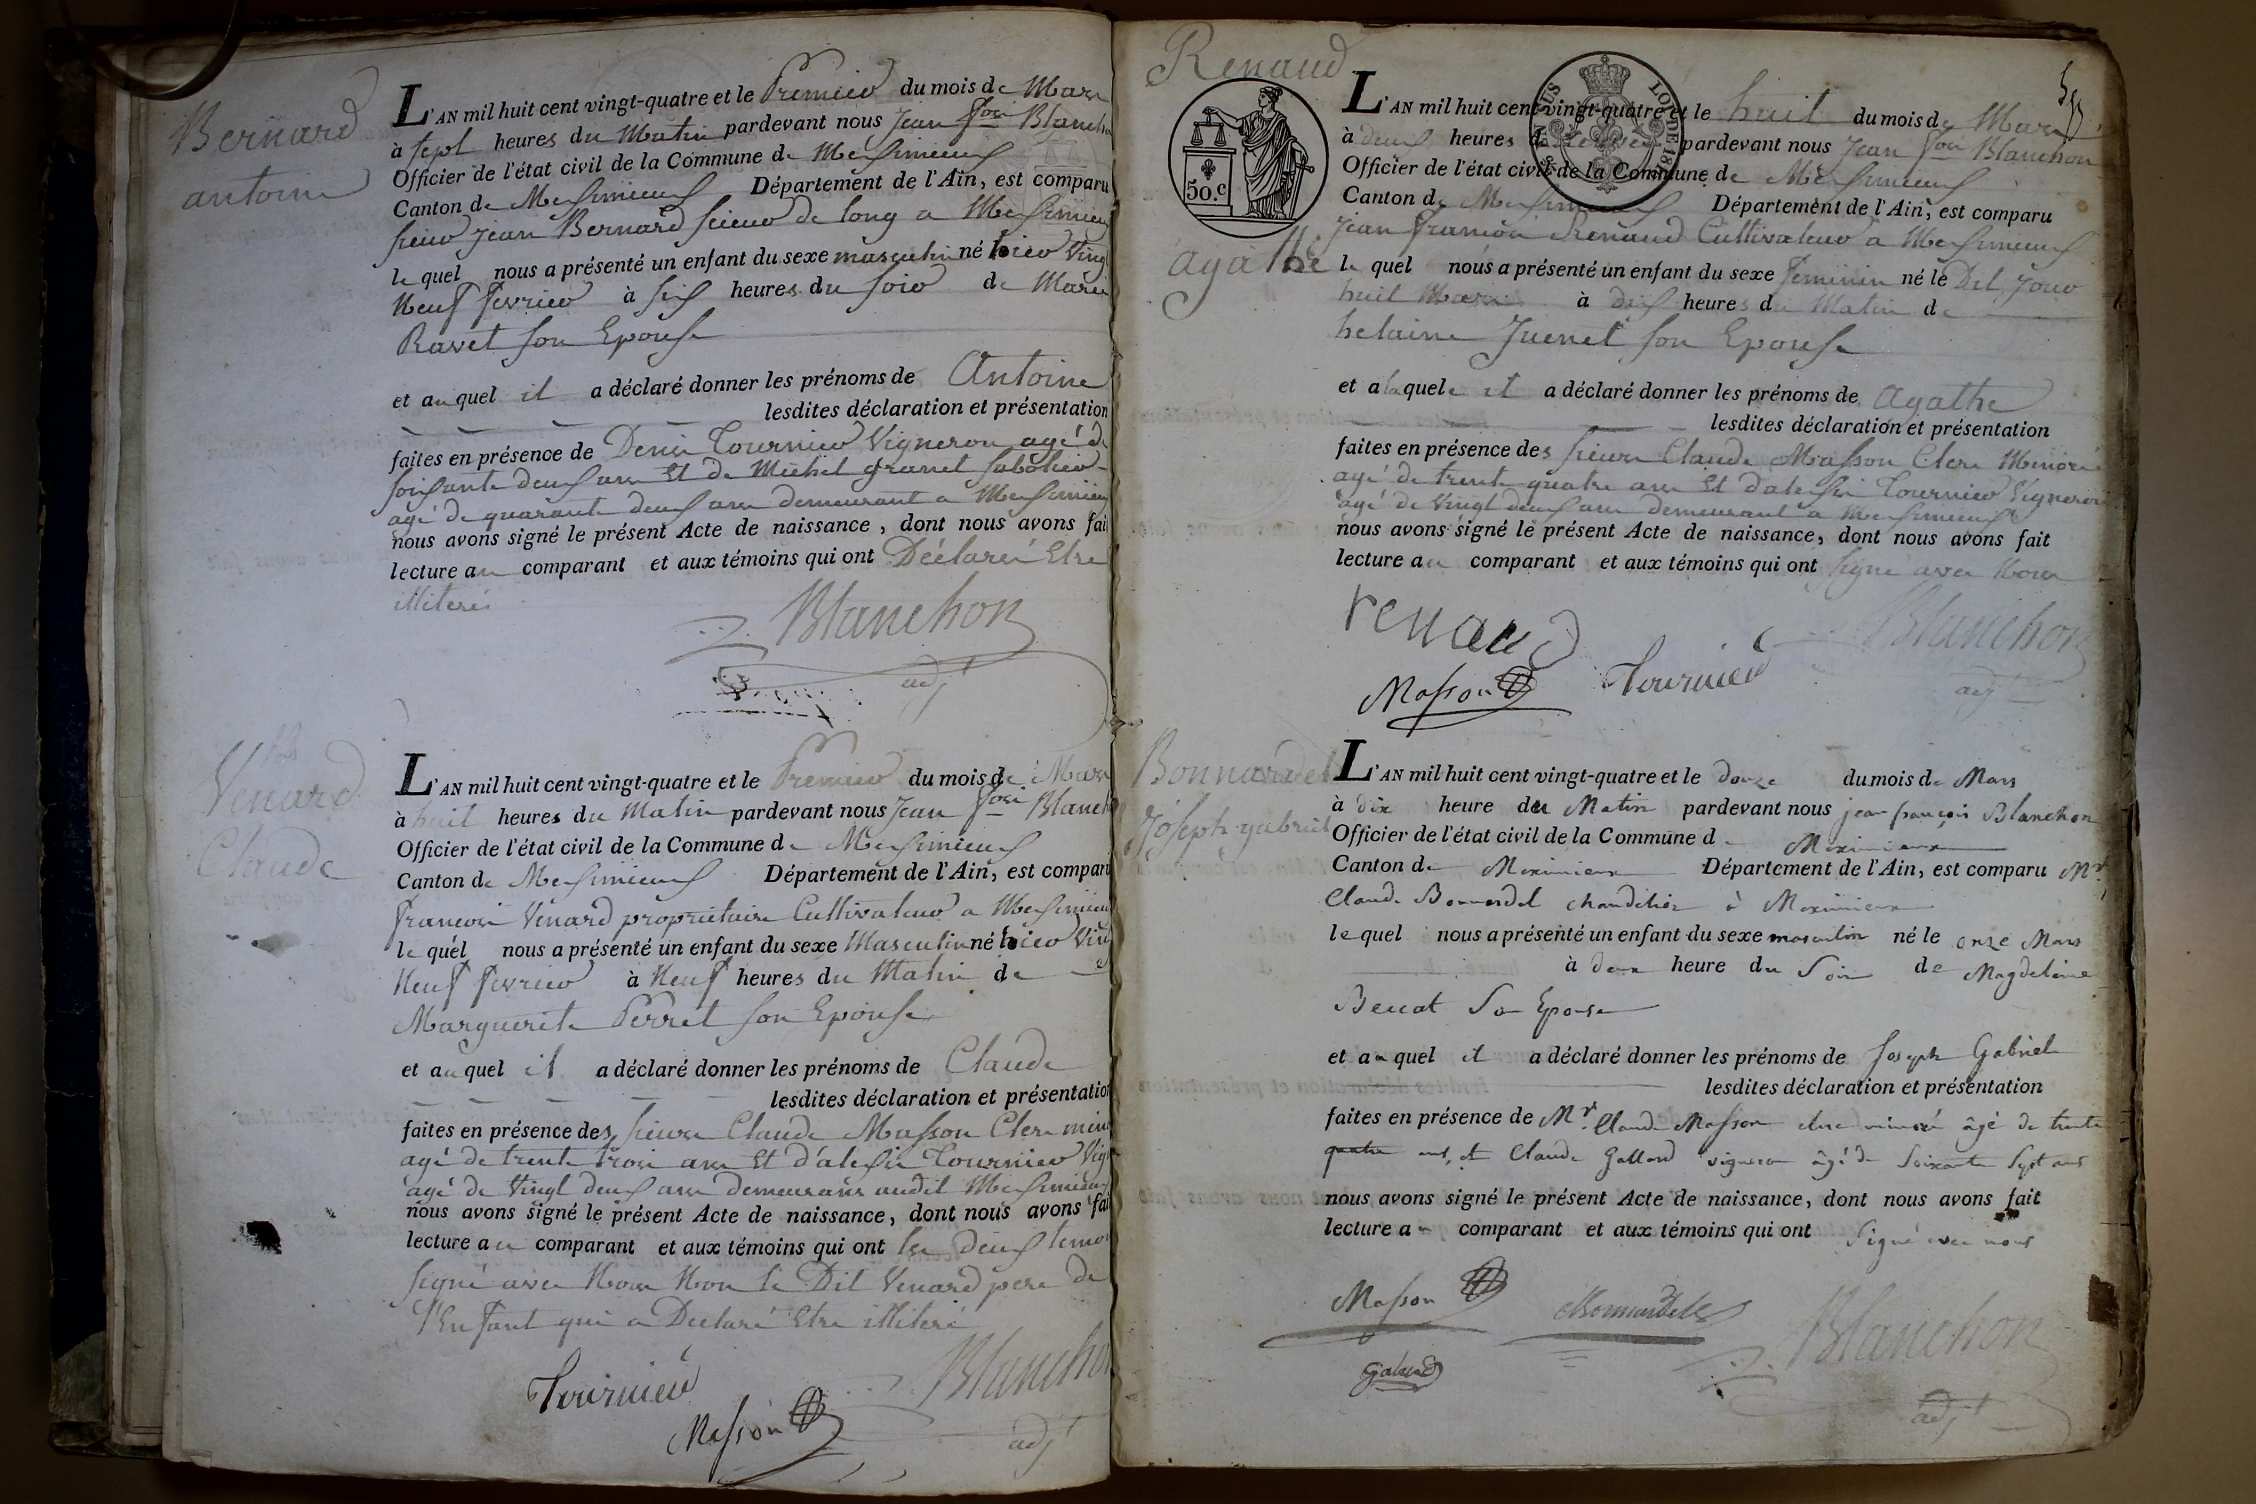 Bernard
antoine
L'AN mil huit cent vingt-quatre et le Premier du mois de Mars
à sept heures du Matin pardevant nous Jean fois Blancho
Officier de l'état civil de la Commune de Meximieux
Canton de Meximieux Département de l'Ain, est comparu
sieur jean Bernard scieur de long a Meximieux
le quel nous a présenté un enfant du sexe masculin né hier Vingt
Neuf fevrier à six heures du soir de Marie
Ravet son Epouse
et au quel il a déclaré donner les prénoms de Antoine
lesdites déclaration et présentation
faites en présence de Denis Tournier Vigneron agé de
soixante deux ans Et de Michel granet sabotier
agé de quarante deux ans demeurant a Meximieux
nous avons signé le présent Acte de naissance, dont nous avons fait
lecture au comparant et aux témoins qui ont Déclaré Etre
illiteré
Blanchon
adjt
Venard
Claude
L'AN mil huit cent vingt-quatre et le Premier du mois de Mars
à huit heures du Matin pardevant nous Jean fois Blanch
Officier de l'état civil de la Commune de Meximieux
Canton de Meximieux Département de l'Ain, est comparu
francois Venard propriétaire Cultivateur a Meximieux
le quel nous a présenté un enfant du sexe Masculin né hier Vingt
Neuf fevrier à Neuf heures du Matin de
Marguerite Perret son Epouse
et au quel il a déclaré donner les prénoms de Claude
lesdites déclaration et présentation
faites en présence des sieurs Claude Masson Clerc mino
agé de trente trois ans Et d'alexis Tournier Vign
agé de Vingt deux ans demeurans audit Meximieux
nous avons signé le présent Acte de naissance, dont nous avons fai
lecture au comparant et aux témoins qui ont les deux temoi
signé avec Nous Non le Dit Venard pere de
l'Enfant qui a Declaré Etre illiteré
Tournier
Masson
Blanchon
adjt
Renaud
agathe
50.c
LOI DE 18
L'AN mil huit cent vingt-quatre et le huit du mois de Mars
à deux heures d pardevant nous Jean fois Blanchon
Officier de l'état civil de la Commune de Meximieux
Canton de Meximieux Département de l'Ain, est comparu
Jean francois Renaud Cultivateur a Meximieux
le quel nous a présenté un enfant du sexe feminin né le Dit Jour
huit Mars à dix heures du Matin de
helaine Juenet son Epouse
et a laquele il a déclaré donner les prénoms de Agathe
lesdites déclaration et présentation
faites en présence des sieurs Claude Masson Clerc Minoré
agé de trente quatre ans Et d'alexis Tournier Vigneron
agé de Vingt deux ans demeurant a Meximieux
nous avons signé le présent Acte de naissance, dont nous avons fait
lecture au comparant et aux témoins qui ont signé avec Nous
renaud
Blanchon
Masson Tournier
adjt
Bonnardel
Joseph gabriel
L'AN mil huit cent vingt-quatre et le douze du mois de Mars
à dix heure du Matin pardevant nous jean françois Blanchon
Officier de l'état civil de la Commune de Meximieux
Canton de Meximieux Département de l'Ain, est comparu Mr
Claude Bonnardel chandelier à Meximieux
le quel nous a présenté un enfant du sexe masculin né le onze Mars
à deux heure du Soir de Magdeleine
Son Epouse
et au quel il a déclaré donner les prénoms de Joseph Gabriel
lesdites déclaration et présentation
faites en présence de Mr. Claude Masson clerc minoré âgé de trente
quatre ans, et Claude Galland vigneron âgé de Soixante Sept ans
nous avons signé le présent Acte de naissance, dont nous avons fait
lecture au comparant et aux témoins qui ont Signé avec nous
Masson Bonnardel
Blanchon
adjt